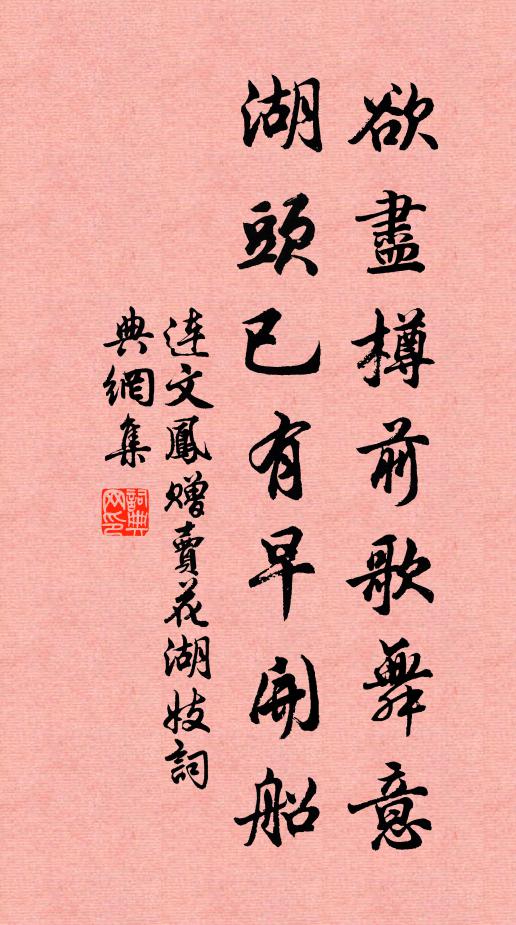 欲盡樽前歌舞意
湖頭已有早開船
連文鳳贈賣花湖妓詞
典網集
詞典網印